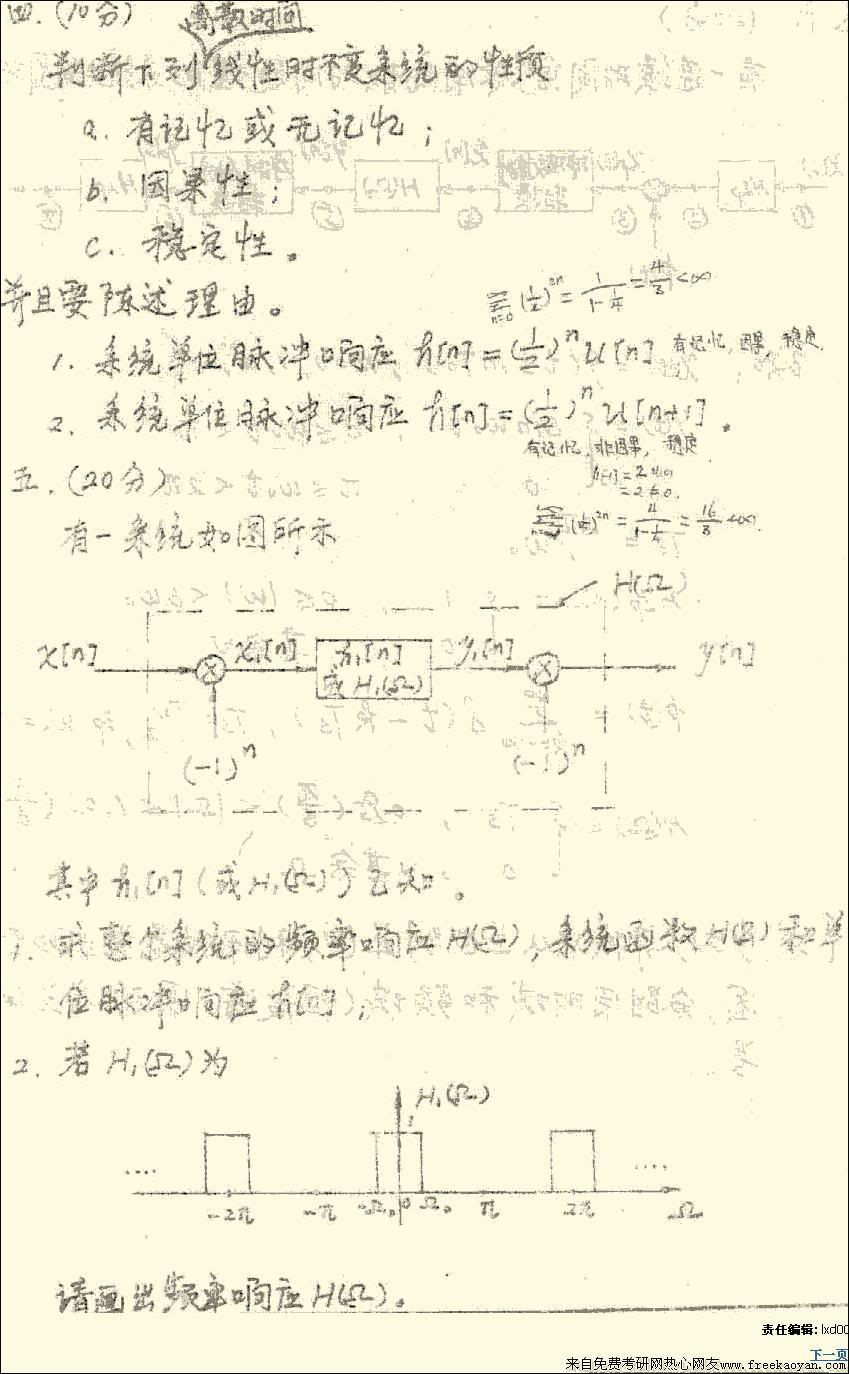 四.(10分) 离散时间
判断下列线性时不变系统的性质
a. 有记忆或无记忆;
b. 因果性;
c. 稳定性。
并且要陈述理由。
1. 系统单位脉冲响应 h[n]=(1/2)^n u[n] 有记忆,因果,稳定.
2. 系统单位脉冲响应 h[n]=(1/2)^n u[n+1].
有记忆,非因果,稳定.
h[-1]=2
=2≠0.
五.(20分)
有一系统如图所示
H(Ω)
x[n] x₁[n] h₁[n] y₁[n] y[n]
或H₁(Ω)
(-1)^n (-1)^n
其中h₁[n](或H₁(Ω))已知。
1. 求整个系统的频率响应H(Ω),系统函数 和单
位脉冲响应h[n];
2. 若H₁(Ω)为
H₁(Ω)
1
.... ....
-2π -π -Ω₀ 0 Ω₀ π 2π Ω
请画出频率响应H(Ω)。
责任编辑:lxd00
下一页
来自免费考研网热心网友www.freekaoyan.com